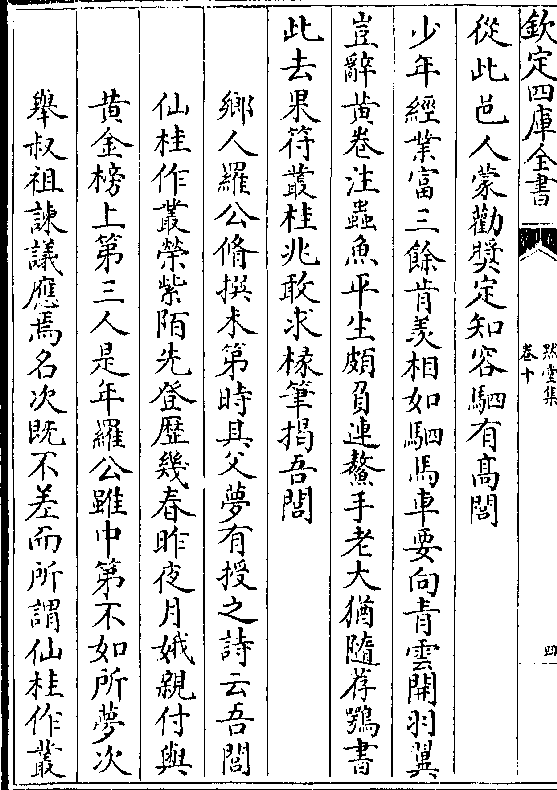 欽定四庫全書
黙堂集
卷十
四
從此邑人蒙勸奬定知容駟有髙閭
少年經業富三餘肯羡相如駟馬車要向青雲開羽翼
豈辭黄卷注蟲魚平生頗負連鰲手老大猶隨荐鶚書
此去果符叢桂兆敢求椽筆揭吾閭
鄉人羅公脩撰未第時其父夢有授之詩云吾閭
仙桂作叢榮紫陌先登歴幾春昨夜月娥親付與
黄金榜上第三人是年羅公雖中第不如所夢次
舉叔祖諫議應焉名次既不差而所謂仙桂作叢